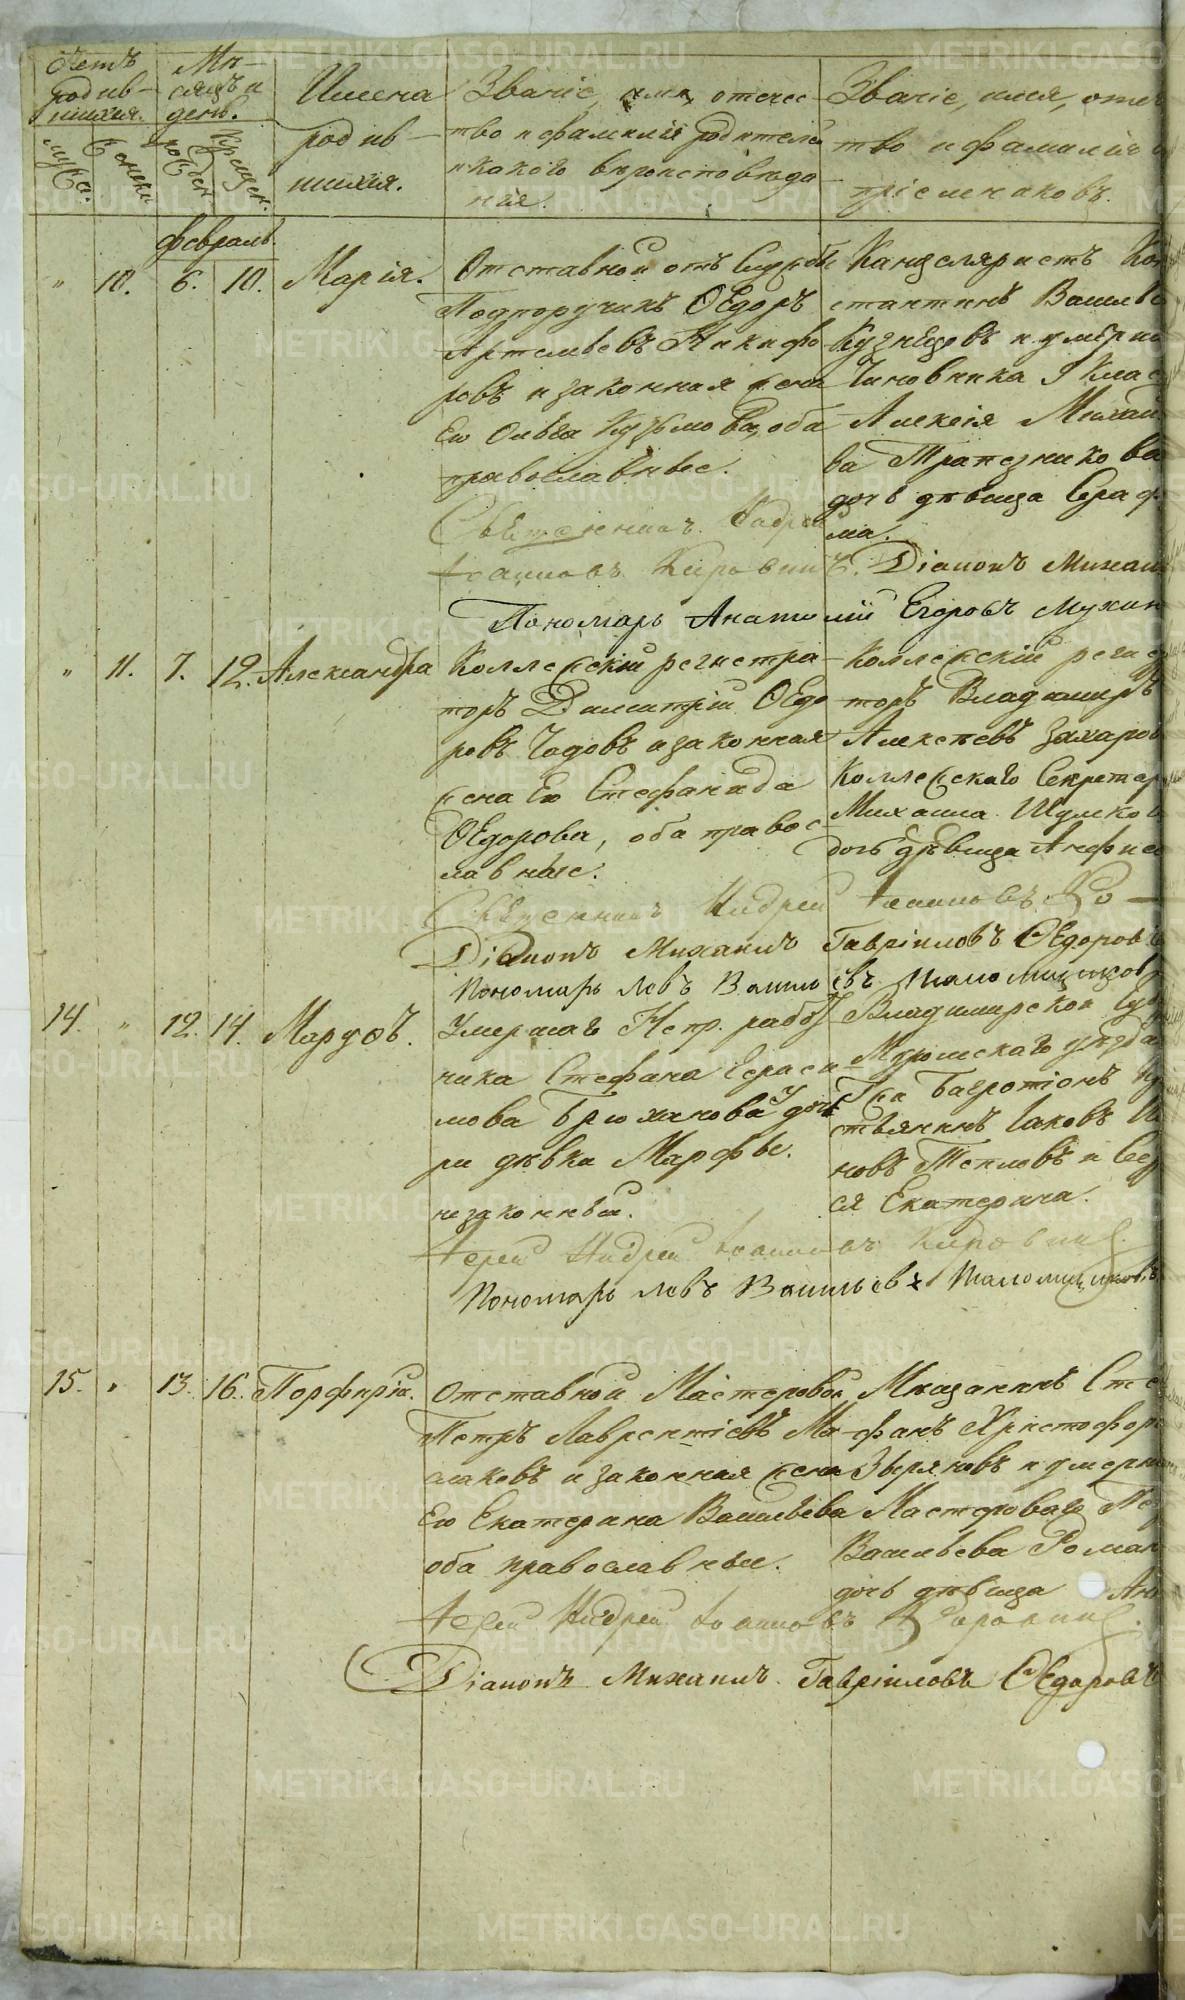 Счетъ родив-шихся.
Мѣ-сяцъ и день.
Имена родив-шихся.
Званіе, имя, отечес-тво и фамилія родителей и какого вѣроисповѣда-нія.
Званіе, имя, отче-тво и фамилія воспріемниковъ.
мужес. женск. рожден. крещен.
февраль.
" 10. 6. 10. Марія.
Отставной отъ службы
Подпоручикъ Ѳедоръ
Артемьевъ Никифо
ровъ и законная жена
Его Ольга Кузьмова, оба
православные.
Канцеляристъ Кон
стантинъ Василье
Кузнецовъ и умерша
Чиновника 9 Клас
Алексія Михай
ва Трапезникова
дочь дѣвица Сераф
ма.
Священникъ Андрей
Іоанновъ Кировскій. Діаконъ Михаил
Пономарь Анатолій Егоровъ Мухин
" 11. 7. 12. Александра
Коллежскій регистра-
торъ Димитрій Ѳедо
ровъ Чадовъ и законная
жена Его Стефанида
Ѳедорова, оба правос-
лавные.
Коллежскій регис
торъ Владимиръ
Алексѣевъ Захаров
Коллежскаго Секретар
Михаила Шумков
дочь дѣвица Анфиса
Священникъ Андрей Іоанновъ
Діаконъ Михаилъ Гавріиловъ Ѳедоровъ
Пономарь Левъ Васильевъ
14. " 12. 14. Маруфъ.
Умершаго Непр. работ
ника Стефана Гераси-
мова Брюханова доче
ри дѣвки Марфы.
незаконный.
Владимирской Губ
Муромскаго уѣзда
Кн. Багратіонъ
стьянинъ Іаковъ И
новъ Тепловъ и
ся Екатерина.
Іерей Андрей Іоанновъ Кировскій.
Пономарь Левъ Васильевъ
15. " 13. 16. Порфирій.
Отставной Мастеровой
Петръ Лаврентіевъ Ма-
лаховъ и законная жена
Его Екатерина Васильева
оба православные.
Мѣщанинъ Сте
фанъ Христофоро
Зыряновъ и умерша
Мастероваго Пет
Васильева Роман
дочь дѣвица Анн
Іерей Андрей Іоанновъ Кировскій.
Діаконъ Михаилъ Гавріиловъ Ѳедоровъ
METRIKI.GASO-URAL.RU